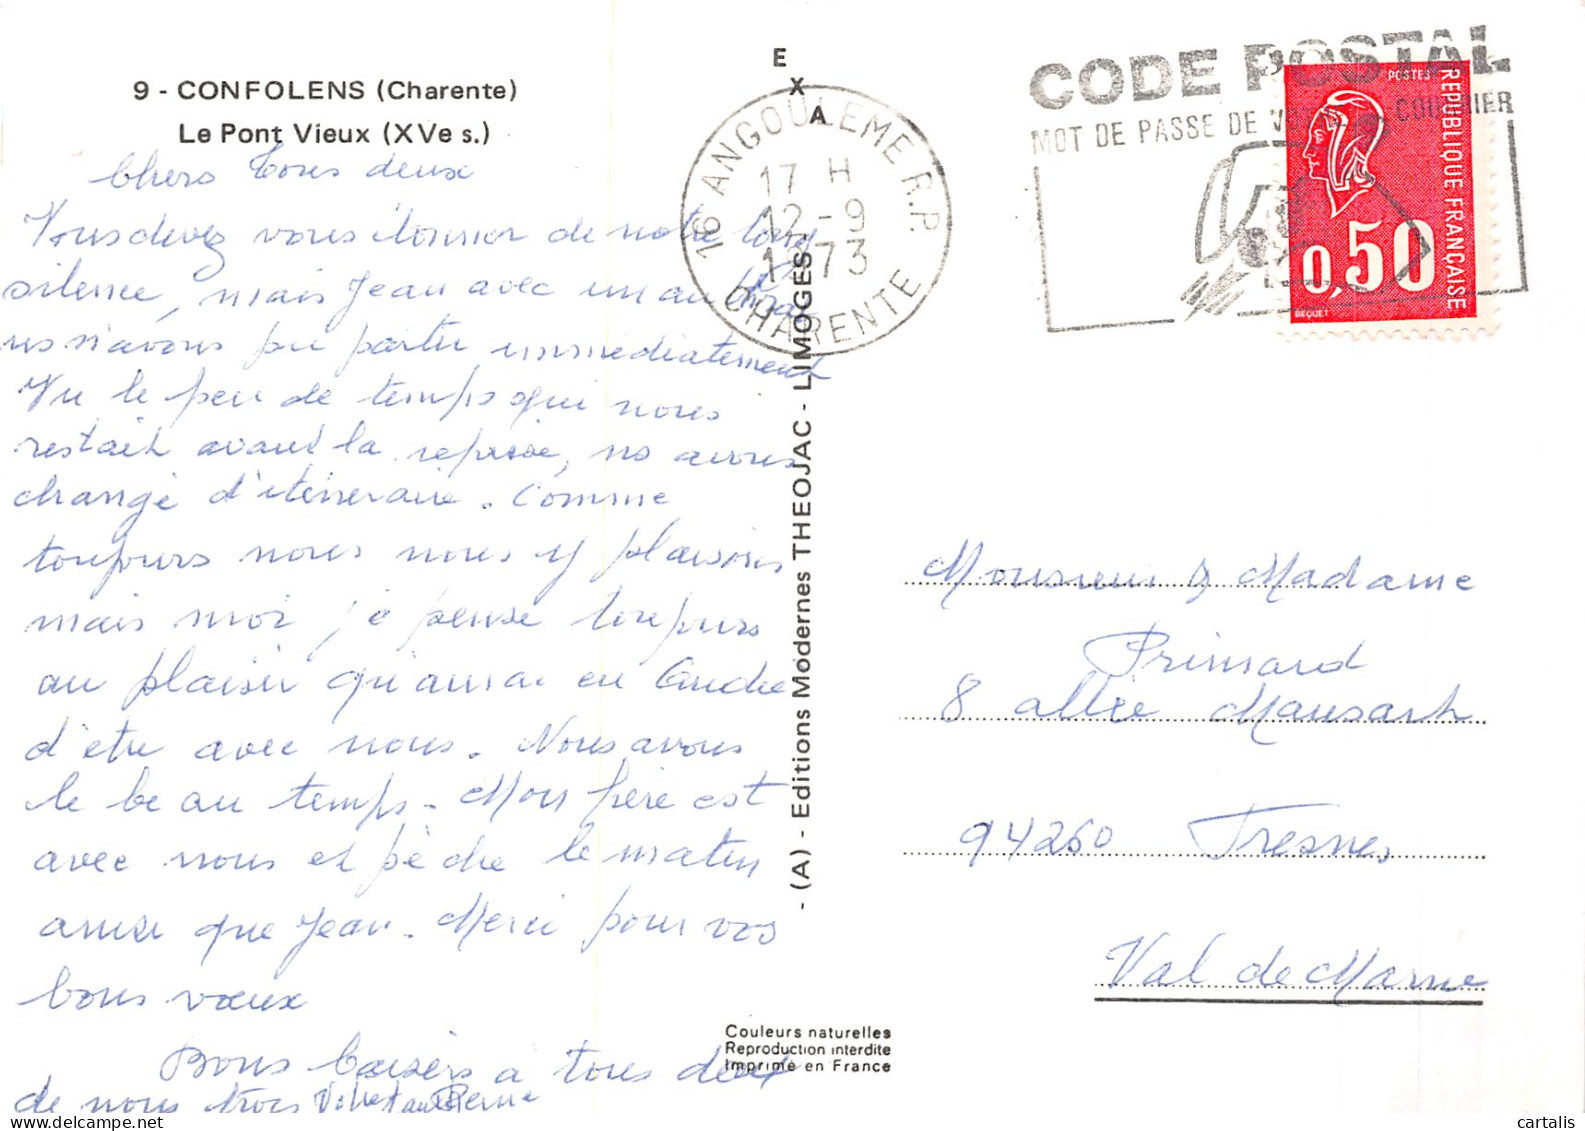 9 - CONFOLENS (Charente)
Le Pont Vieux (XVe s.)
Chers Tous deux
Vous devez vous étonner de notre long
silence, mais Jean avec un au
ns n'avons pu partir immédiatement
Vu le peu de temps que nous
restait avant la reprise, ns avons
changé d'itinéraire. Comme
toujours nous nous y plaisons
mais moi je pense toujours
au plaisir qu'aurai en
d'être avec nous. Nous avons
le beau temps. Mon frère est
avec nous et pêche le matin
que Jean. Merci pour vos
bons vœux
Bons baisers à tous deux
de nous trois
E
X
A
- (A) - Editions Modernes THEOJAC - LIMOGES
Couleurs naturelles
Reproduction interdite
Imprimé en France
16 ANGOULEME R.P.
17 H
12 - 9
1973
CHARENTE
CODE POSTAL
MOT DE PASSE DE VOTRE COURRIER
POSTES
REPUBLIQUE FRANÇAISE
0,50
BEQUET
Monsieur & Madame
Primard
8 allée Mansart
94260 Fresnes
Val de Marne
cartalis
delcampe.net